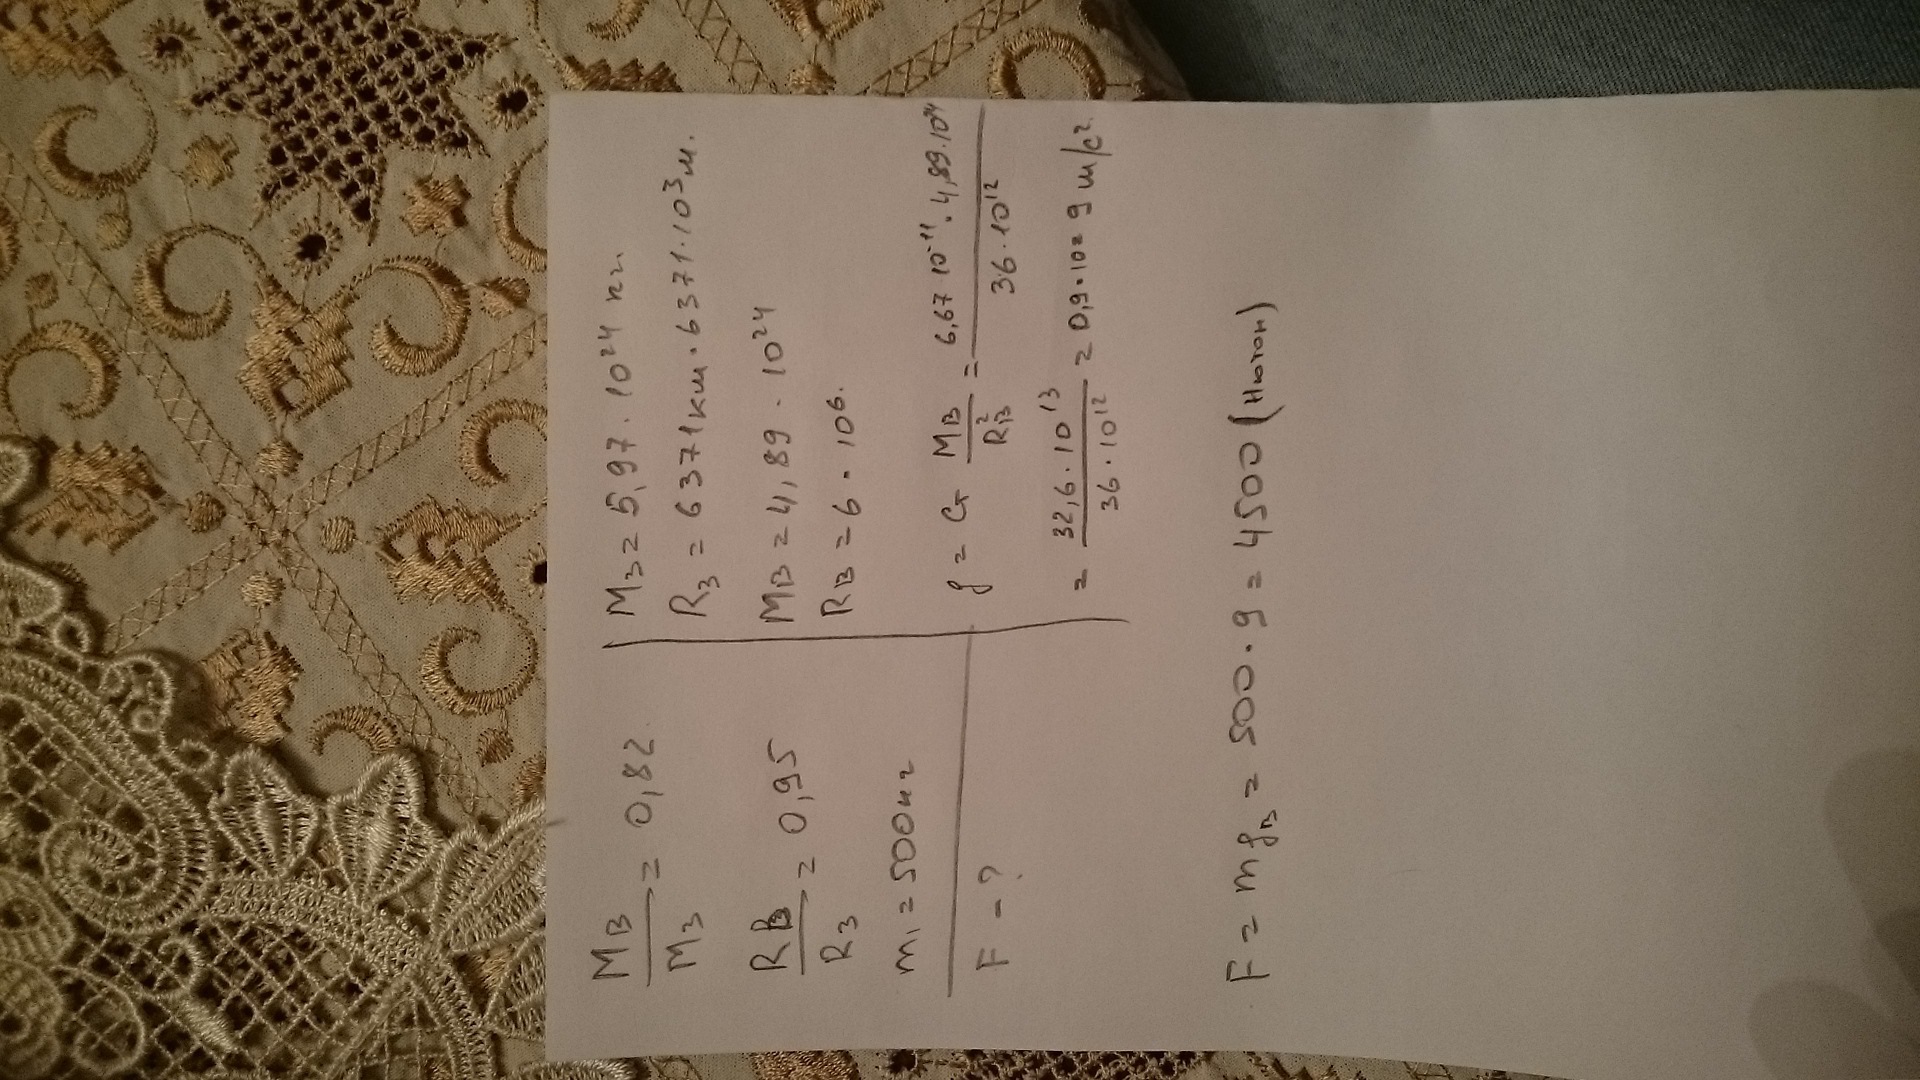 MВ / MЗ = 0,82
RВ / RЗ = 0,95
m₁ = 500кг
F - ?
MЗ = 5,97 · 10²⁴ кг.
RЗ = 6371км · 6371·10³м.
MВ = 4,89 · 10²⁴
RВ = 6 · 10⁶.
g = G MВ / RВ² = 6,67 10⁻¹¹ · 4,89·10²⁴ / 36·10¹²
= 32,6·10¹³ / 36·10¹² = 0,9·10 = 9 м/с²
F = mgВ = 500·9 = 4500 (Ньютон)